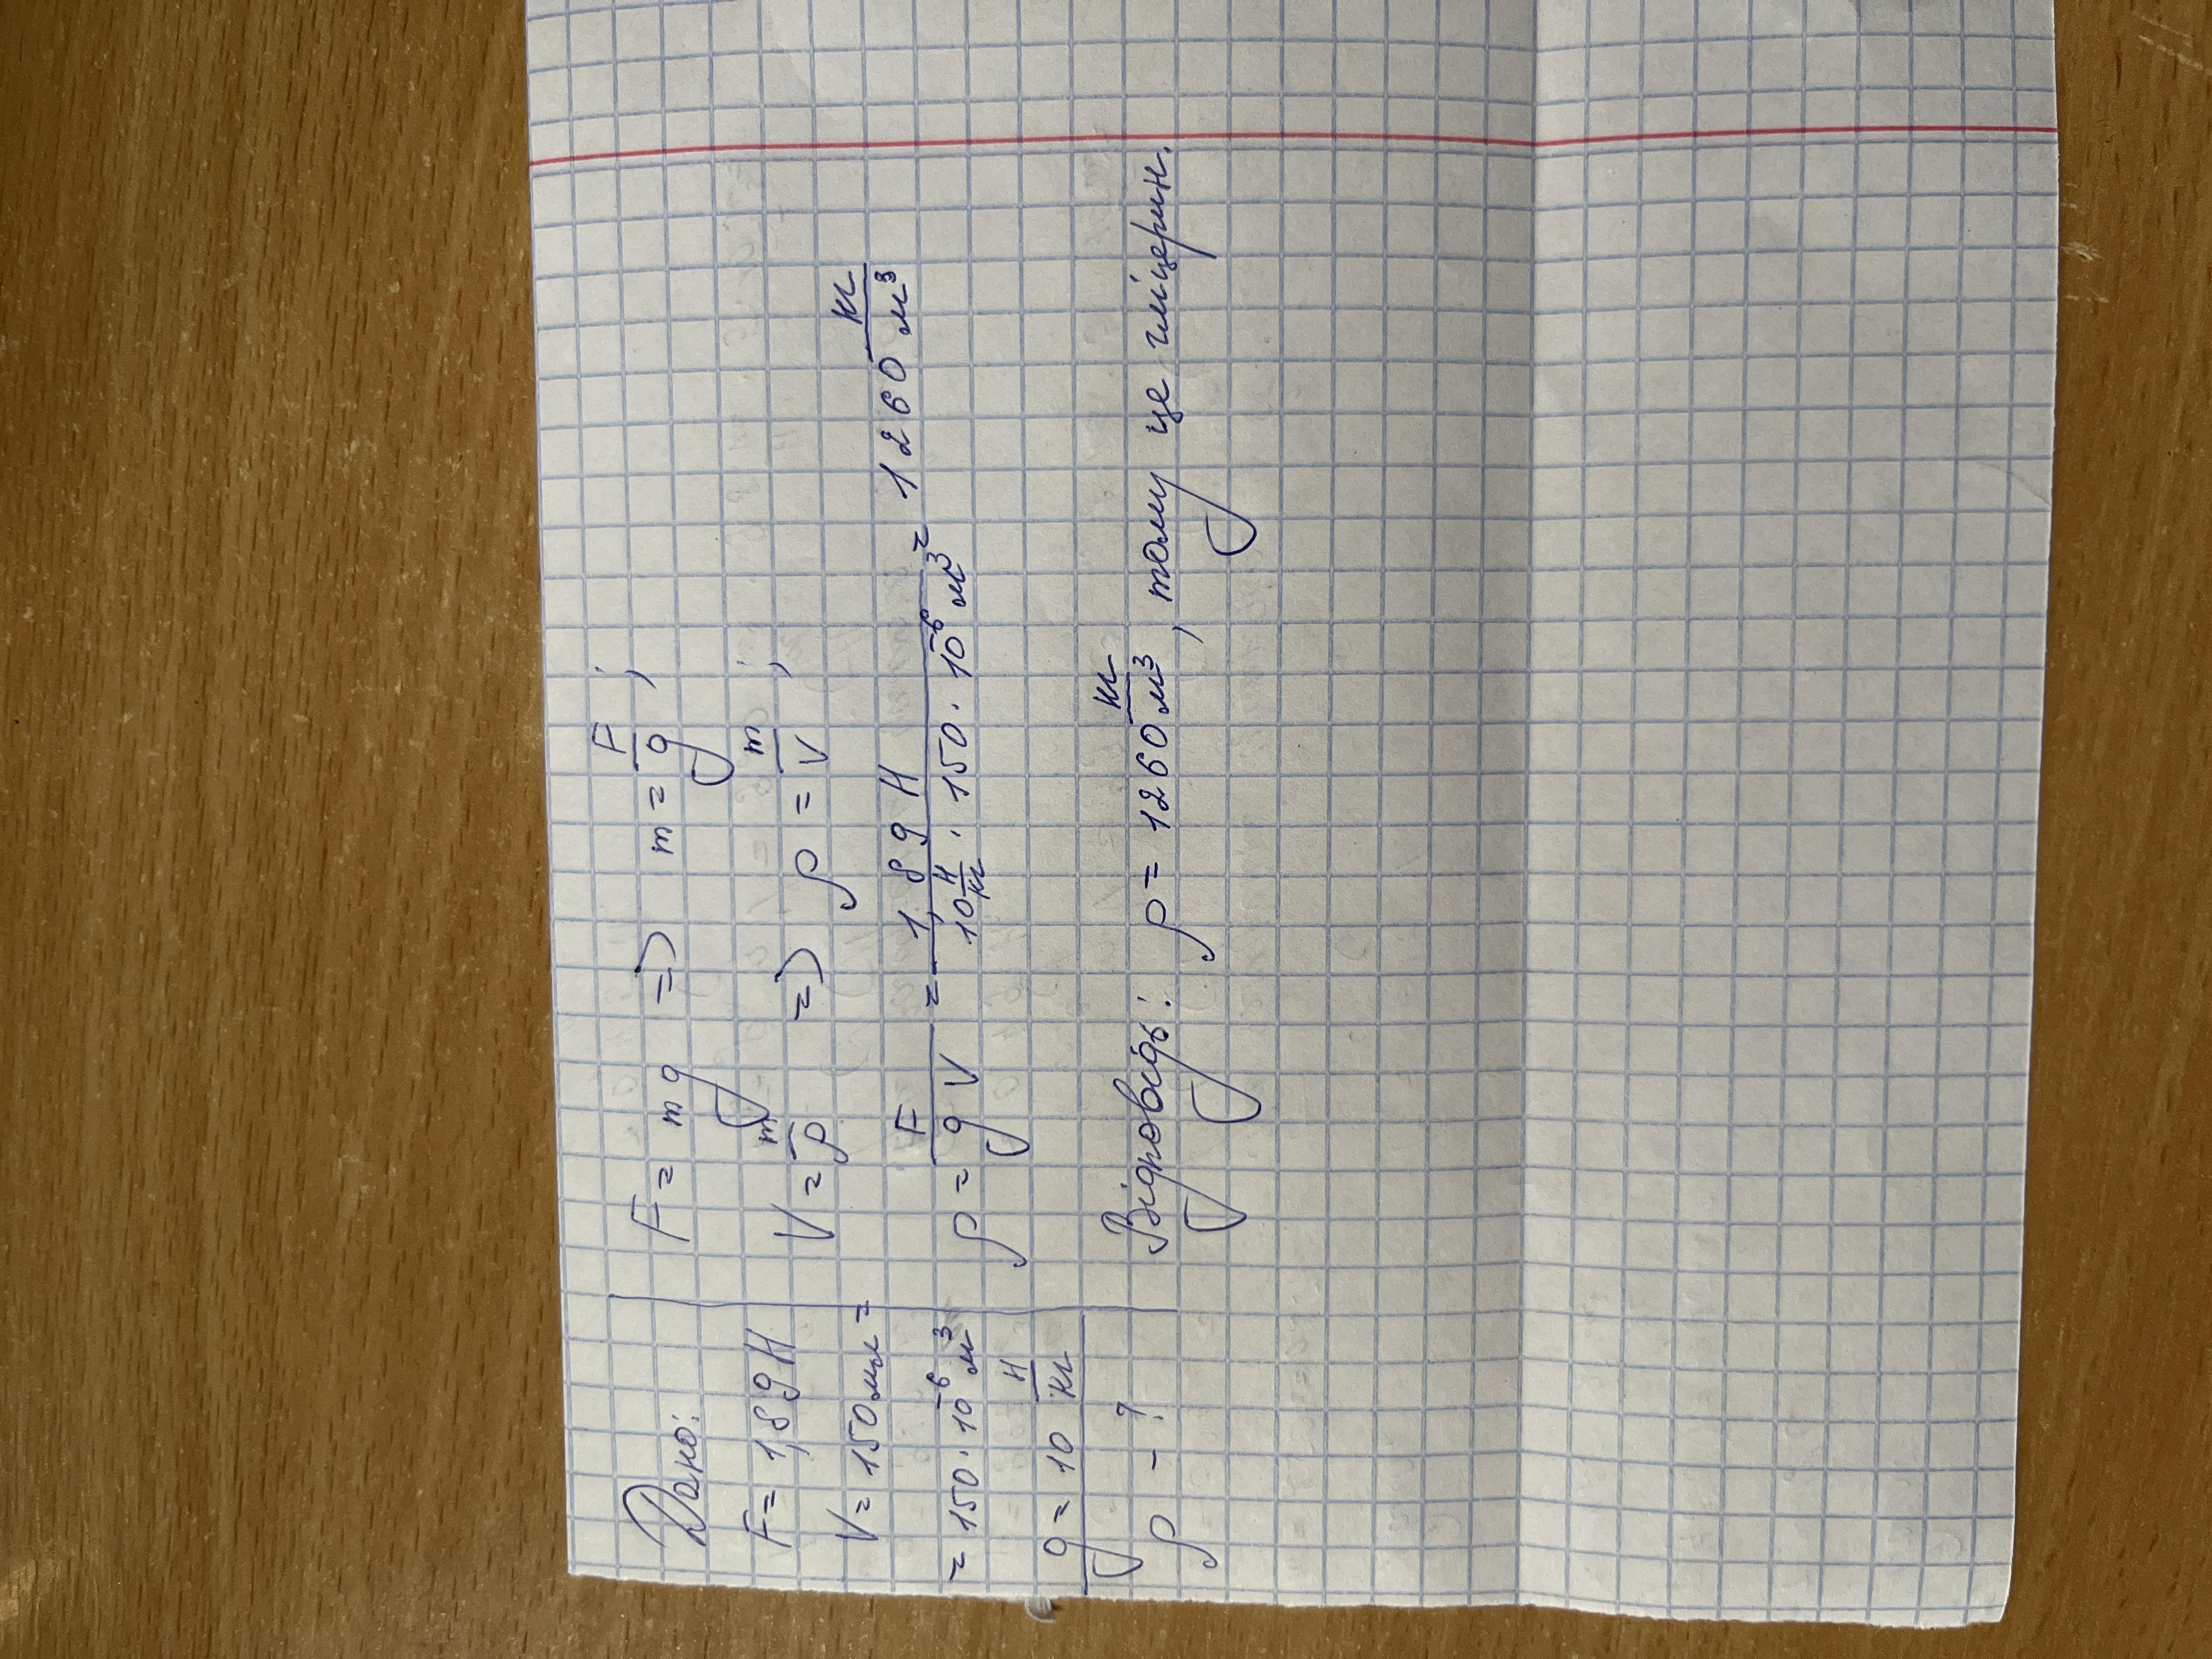 Дано:
F = 1,89 Н
V = 150 мл =
= 150 · 10⁻⁶ м³
g = 10 Н/кг
ρ - ?
F = mg => m = F/g ;
V = m/ρ => ρ = m/V ;
ρ = F/gV = 1,89 Н/10 Н/кг · 150 · 10⁻⁶ м³ = 1260 кг/м³
Відповідь: ρ = 1260 кг/м³, тому це гліцерин.